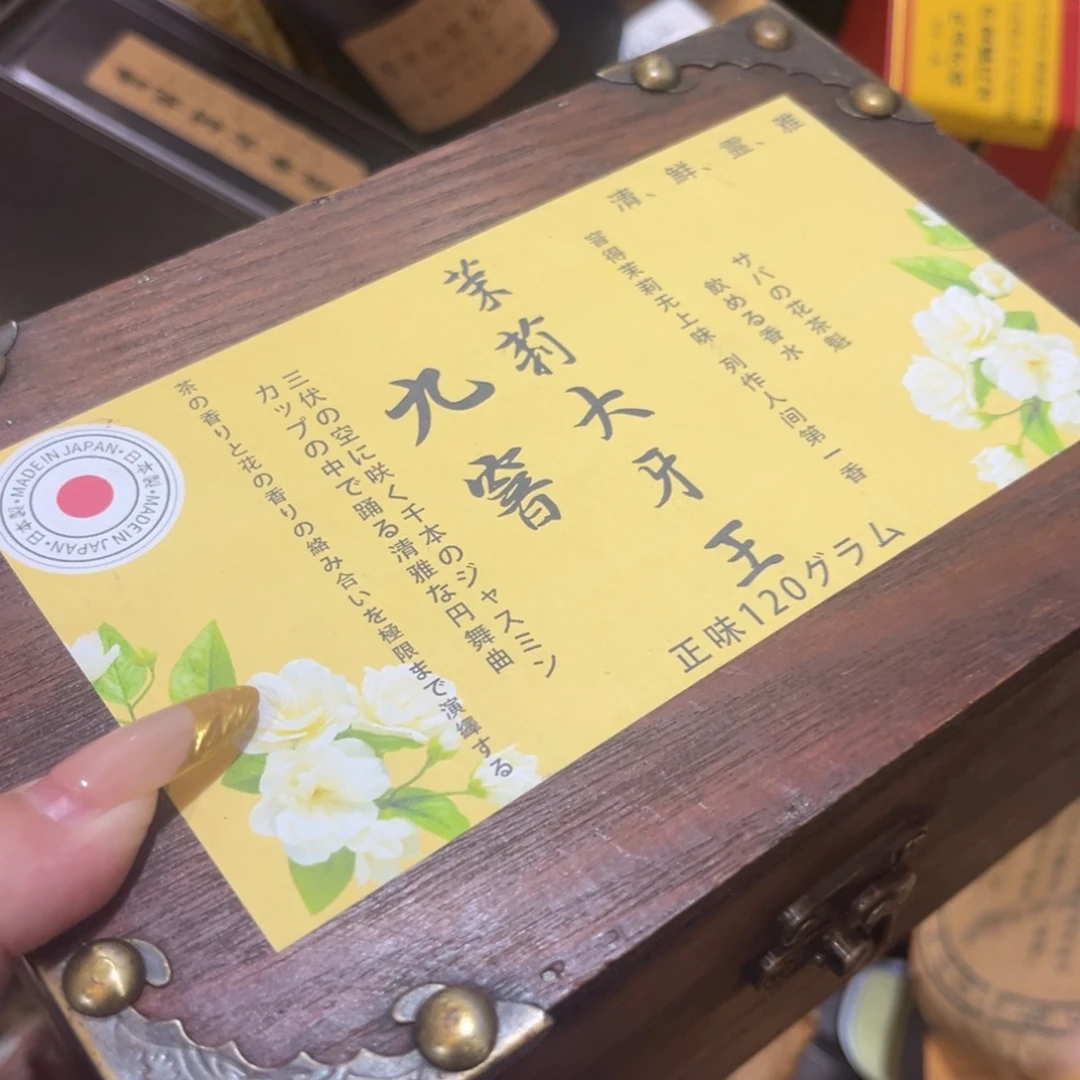 清、鮮、霊、雅
サバの花茶魁
飲める香水
窨得茉莉无上味 列作人间第一香
茉莉大牙王
九窨
正味120グラム
三伏の空に咲く千本のジャスミン
カップの中で踊る清雅な円舞曲
茶の香りと花の香りの絡み合いを極限まで演繹する
MADE IN JAPAN・日本製・MADE IN JAPAN・日本製